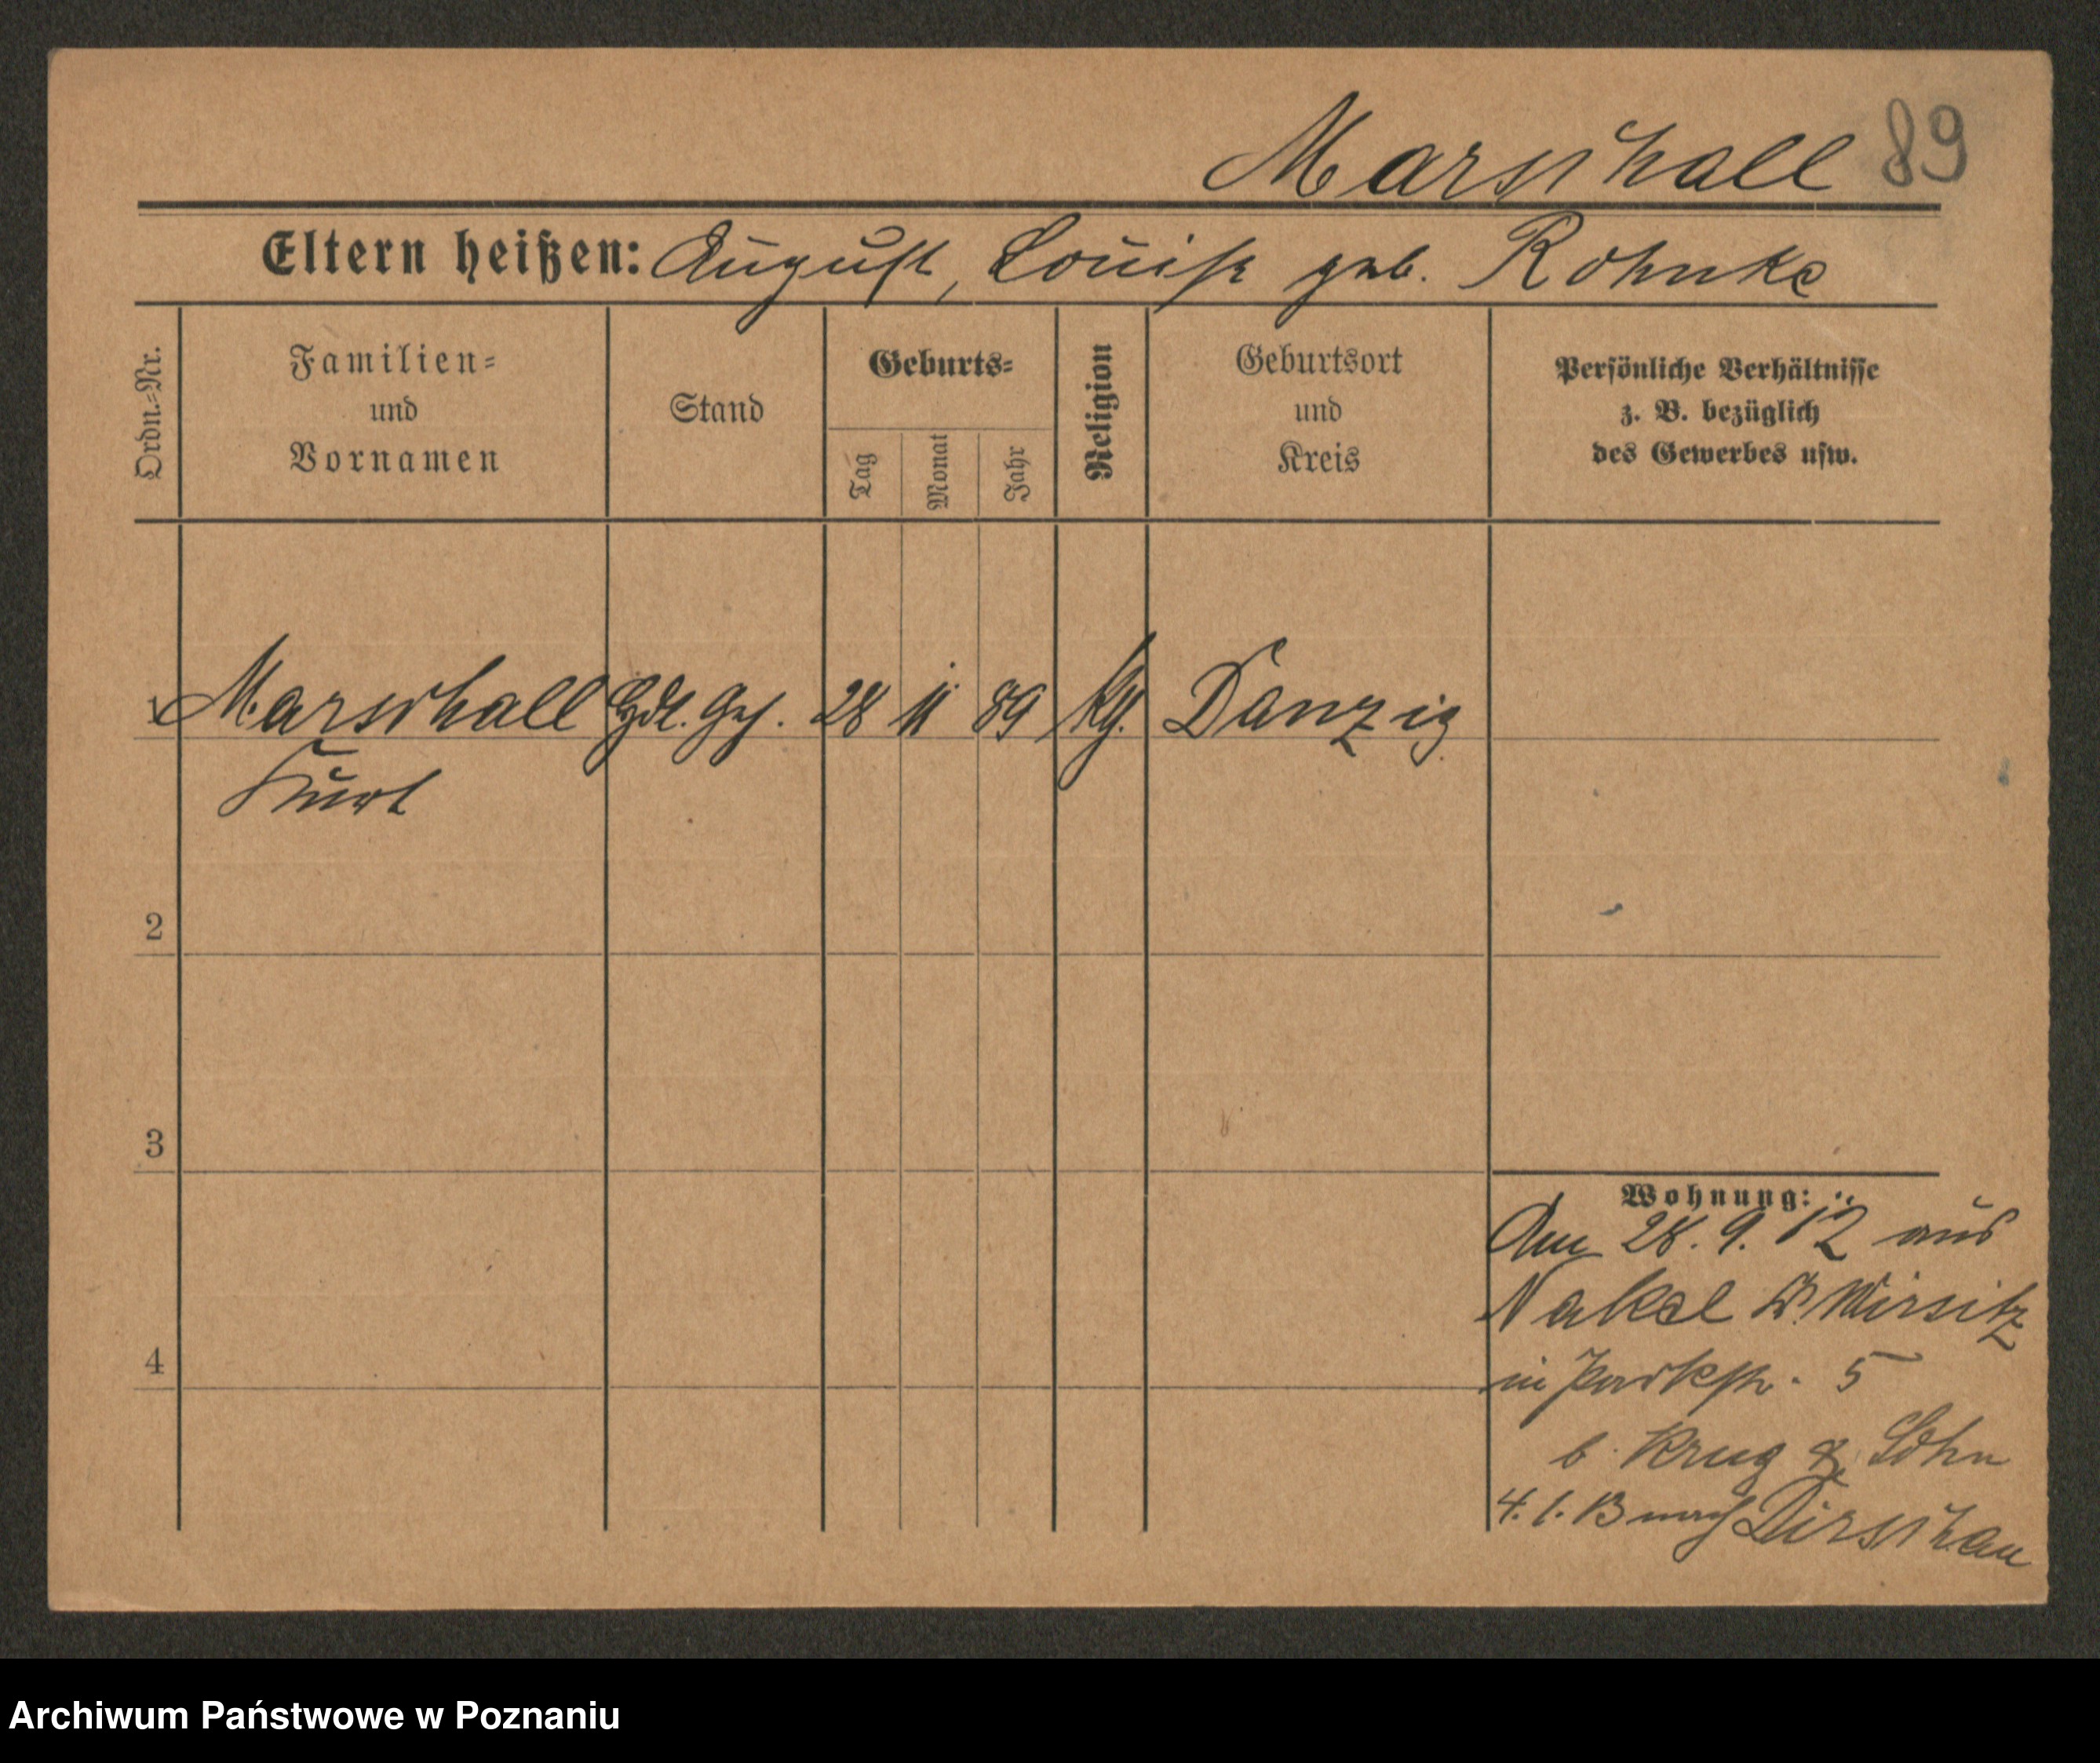 Marschall 89
Eltern heißen: August, Louise geb. Rohnke
Ordn.=Nr.
Familien=
und
Vornamen
Stand
Geburts=
Tag
Monat
Jahr
Religion
Geburtsort
und
Kreis
Persönliche Verhältnisse
z. B. bezüglich
des Gewerbes usw.
1 Marschall Hdl. Geh. 28 11 89 Danzig
Kurt
2
3
4
Wohnung:
Am 28. 9. 12 aus
Nakel Kr. Wirsitz
in Parkstr. 5
b. Krug & Sohn
4. 1. 13 nach Dirschau
Archiwum Państwowe w Poznaniu